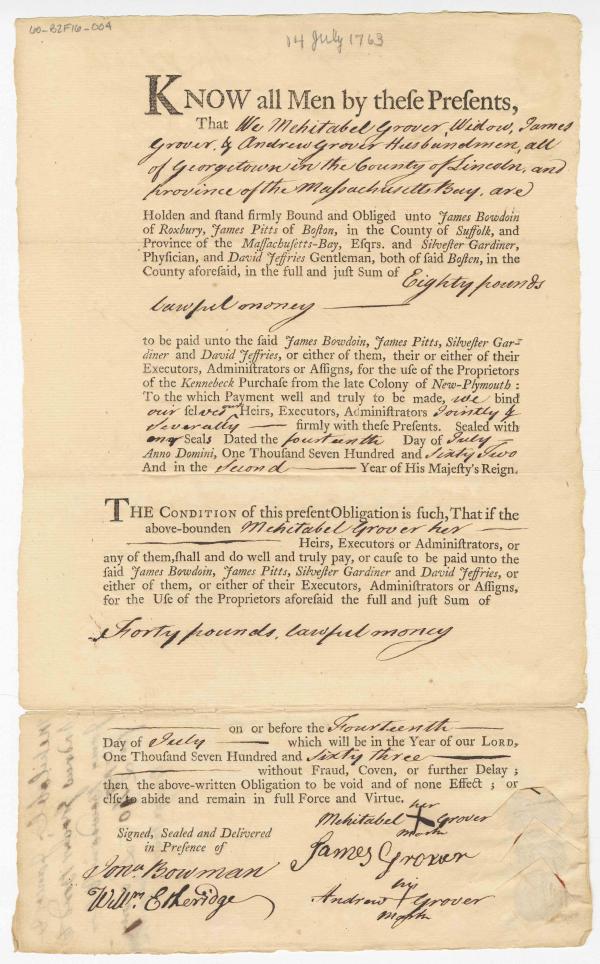 60-B2F16-004
14 July 1763
KNOW all Men by theſe Preſents,
That We Mehitabel Grover, Widow, James
Grover, & Andrew Grover Husbandmen, all
of Georgetown in the County of Lincoln, and
province of the Massachusetts Bay, are
Holden and ſtand firmly Bound and Obliged unto James Bowdoin
of Roxbury, James Pitts of Boſton, in the County of Suffolk, and
Province of the Maſſachuſetts-Bay, Eſqrs. and Silveſter Gardiner,
Phyſician, and David Jeffries Gentleman, both of ſaid Boſton, in the
County aforeſaid, in the full and juſt Sum of Eighty pounds
lawful money
to be paid unto the ſaid James Bowdoin, James Pitts, Silveſter Gar-
diner and David Jeffries, or either of them, their or either of their
Executors, Adminiſtrators or Aſſigns, for the uſe of the Proprietors
of the Kennebeck Purchaſe from the late Colony of New-Plymouth:
To the which Payment well and truly to be made, we bind
our ſelves our Heirs, Executors, Adminiſtrators Jointly &
Severally firmly with theſe Preſents. Sealed with
our Seals Dated the fourteenth Day of July
Anno Domini, One Thouſand Seven Hundred and Sixty Two
And in the Second Year of His Majeſty's Reign.
THE CONDITION of this preſent Obligation is ſuch, That if the
above-bounden Mehitabel Grover her
Heirs, Executors or Adminiſtrators, or
any of them, ſhall and do well and truly pay, or cauſe to be paid unto the
ſaid James Bowdoin, James Pitts, Silveſter Gardiner and David Jeffries, or
either of them, or either of their Executors, Adminiſtrators or Aſſigns,
for the Uſe of the Proprietors aforeſaid the full and juſt Sum of
Forty pounds, lawful money
on or before the Fourteenth
Day of July which will be in the Year of our LORD,
One Thouſand Seven Hundred and ſixty three
without Fraud, Coven, or further Delay;
then the above-written Obligation to be void and of none Effect; or
elſe to abide and remain in full Force and Virtue.
her
Mehitabel + Grover
mark
Signed, Sealed and Delivered
in Preſence of
James Grover
Jona Bowman
Willm Etheridge
his
Andrew + Grover
mark